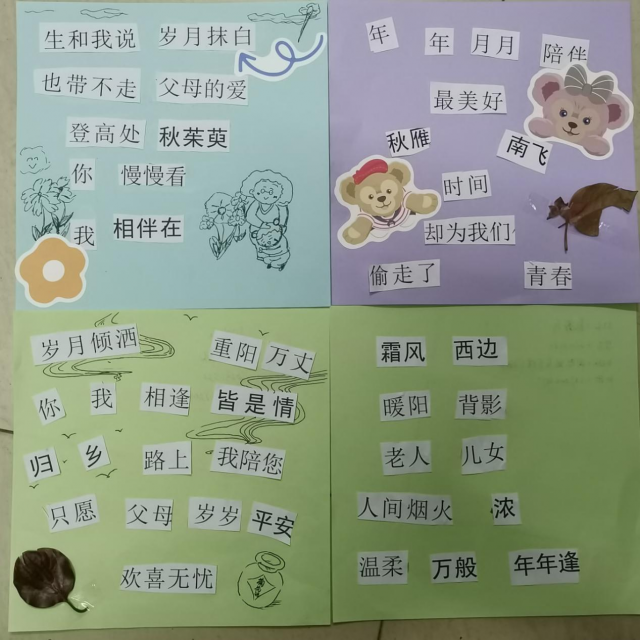 生和我说 岁月抹白
也带不走 父母的爱
登高处 秋茱萸
你 慢慢看
我 相伴在
年 年 月月 陪伴
最美好
秋雁 南飞
时间
却为我们
偷走了 青春
岁月倾洒 重阳 万丈
你 我 相逢 皆是情
归 乡 路上 我陪您
只愿 父母 岁岁 平安
欢喜无忧
霜风 西边
暖阳 背影
老人 儿女
人间烟火 浓
温柔 万般 年年逢